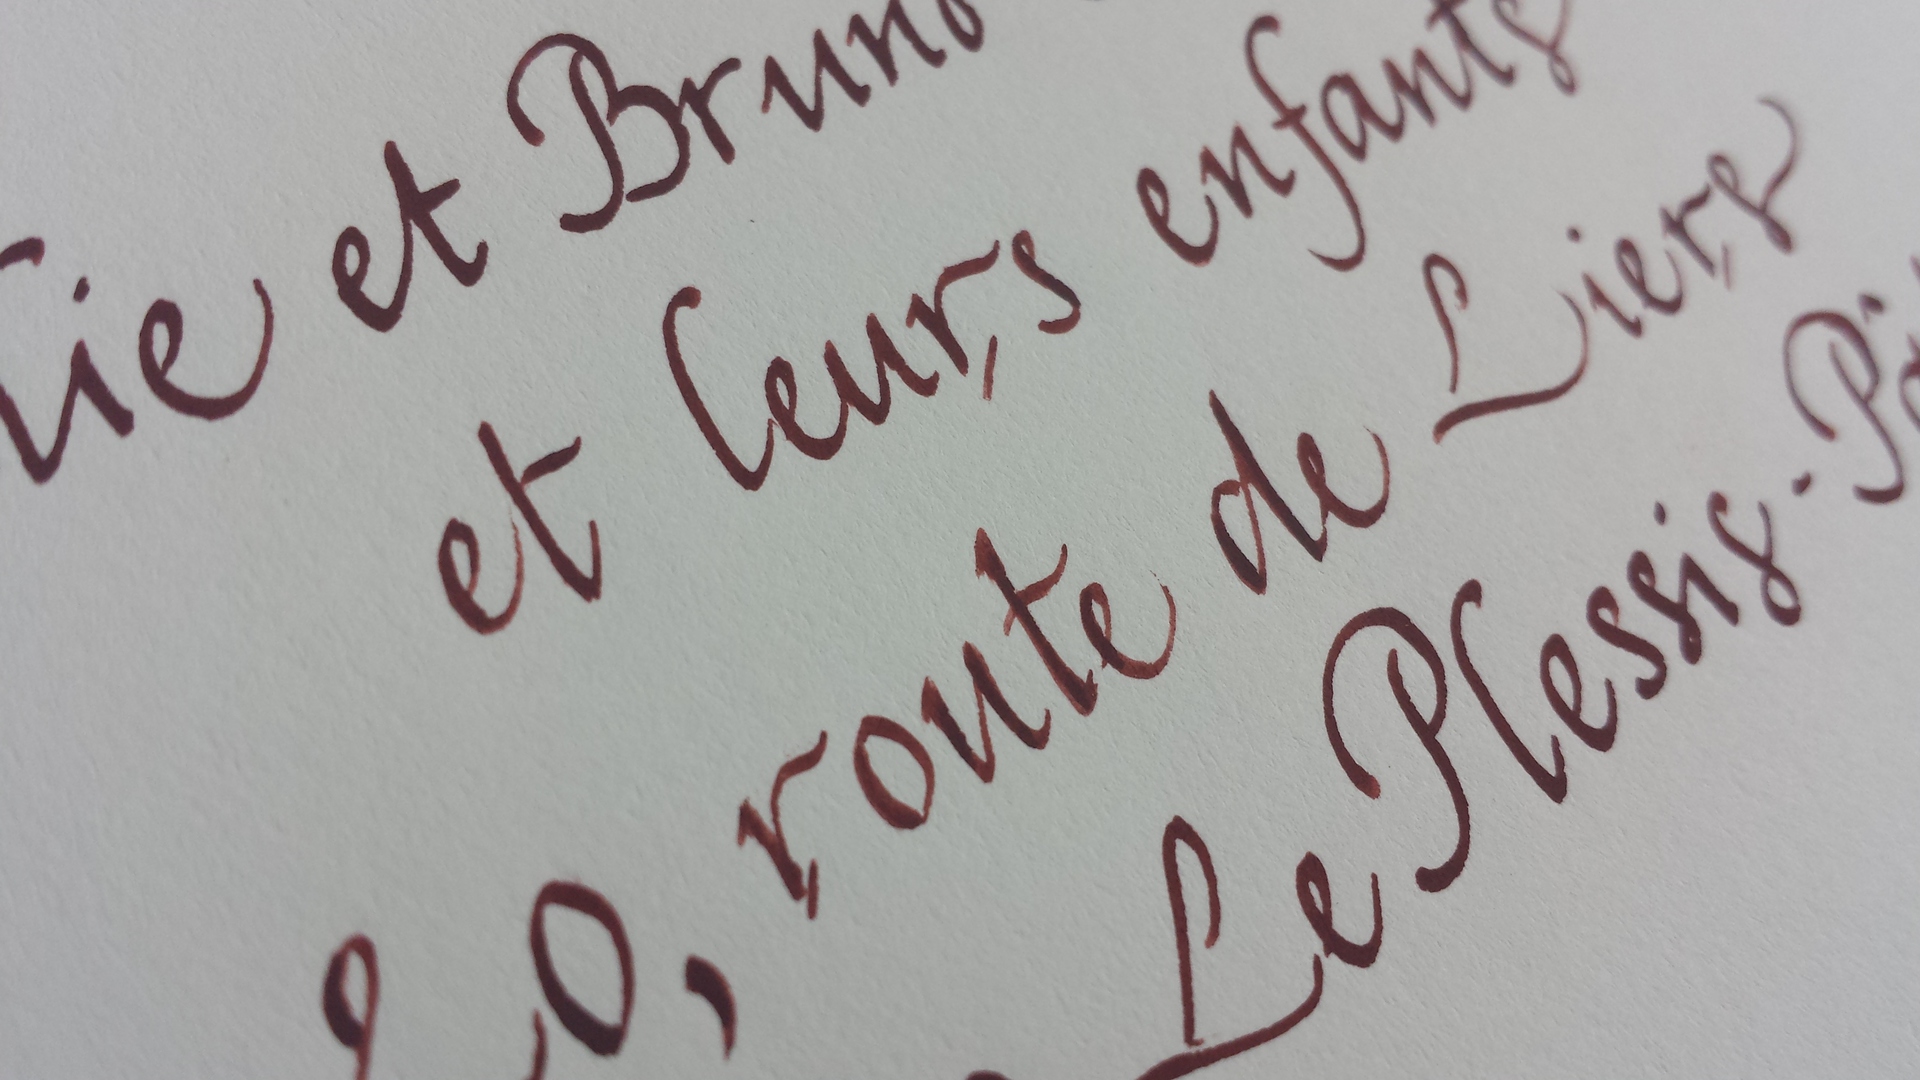 et Bruno
et leurs enfants
20, route de Liers
Le Plessis-